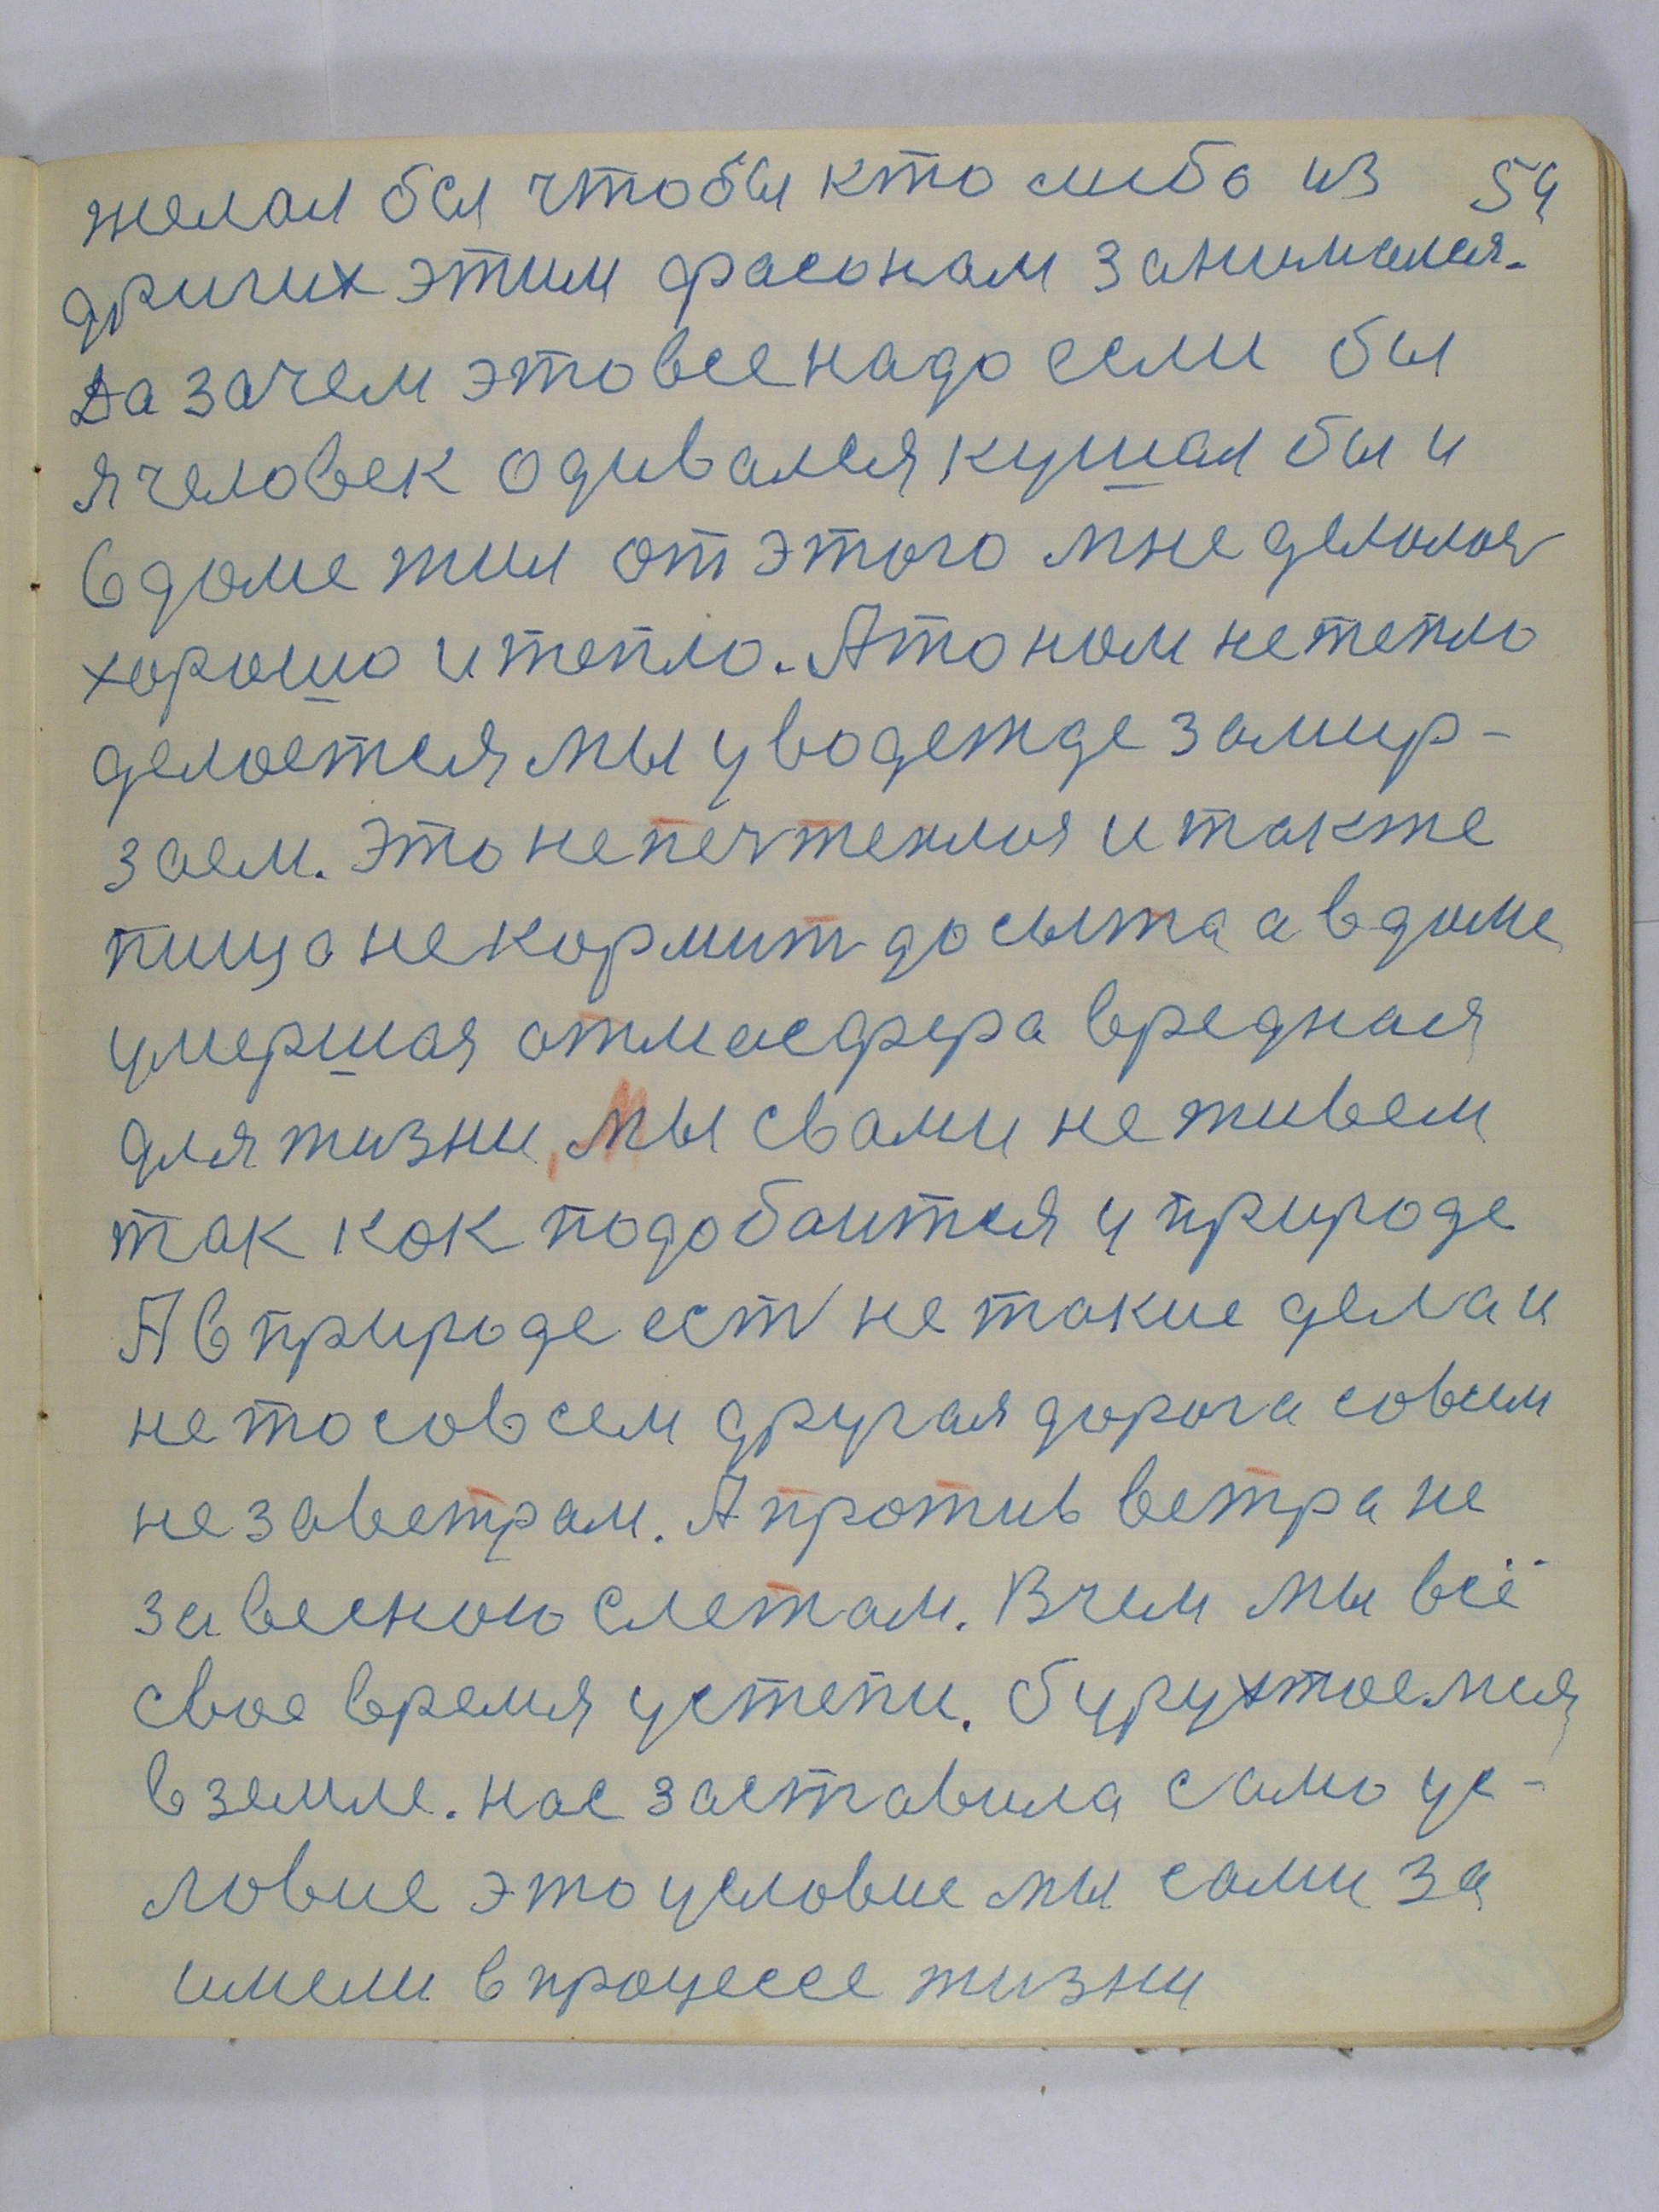 желал бы чтобы кто либо из 54
других этим фасонам занимался.
Да зачем это все надо если бы
я человек одивался кушал бы и
в доме жил от этого мне делолоя
хорошо и тепло. А то нам не тепло
делоется мы у водежде замир-
заем. Это не печ теплоя и также
пища не кормит до сыта а в доме
умершая атмасфера вредная
для жизни, мы свами не живем
так как подобаится у природе
А в природе ест не такие дела и
не то совсем другая дорога совсем
не заветрам. А против ветра не
за весною слетам. Вчем мы всё
свое время устепи. бурухтоемся
в земле. нас заставила само ус-
ловие это условие мы сами за
имели в процессе жизни